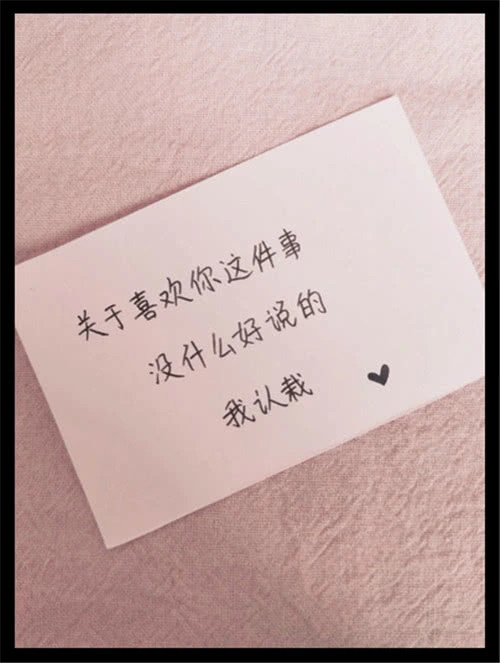 关于喜欢你这件事
没什么好说的
我认栽